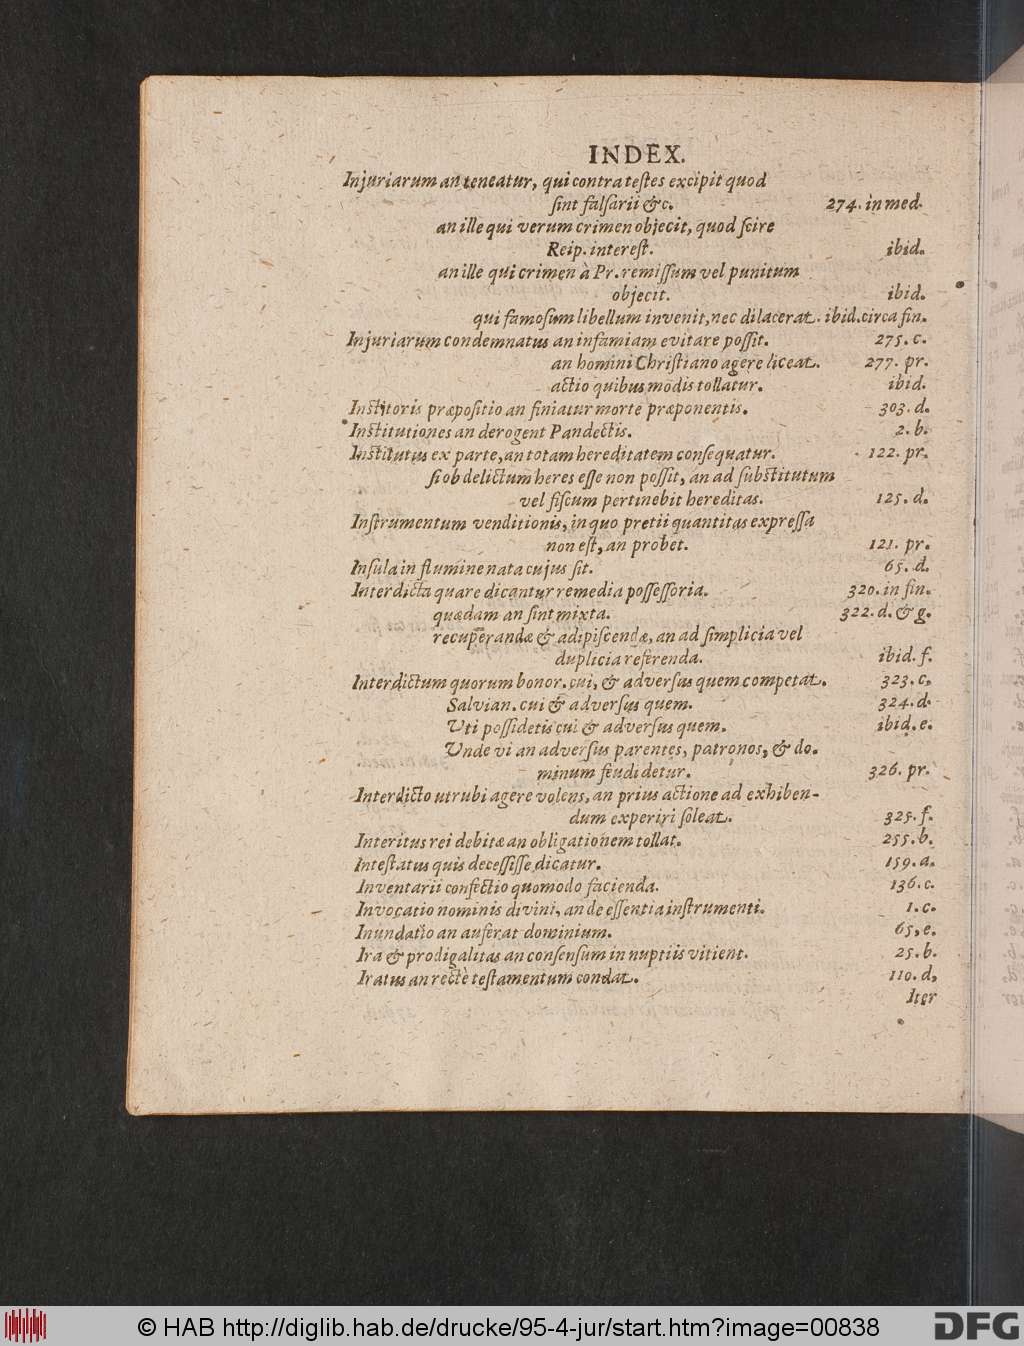 INDEX.
Injuriarum an teneatur, qui contra testes excipit quod
sint falsarii &c. 274. in med.
an ille qui verum crimen objecit, quod scire
Reip. interest. ibid.
an ille qui crimen à Pr. remissum vel punitum
objecit. ibid.
qui famosum libellum invenit, nec dilacerat. ibid. circa fin.
Injuriarum condemnatus an infamiam evitare possit. 275. c.
an homini Christiano agere liceat. 277. pr.
actio quibus modis tollatur. ibid.
Institoris præpositio an finiatur morte præponentis. 303. d.
Institutiones an derogent Pandectis. 2. b.
Institutus ex parte, an totam hereditatem consequatur. 122. pr.
si ob delictum heres esse non possit, an ad substitutum
vel fiscum pertinebit hereditas. 125. d.
Instrumentum venditionis, in quo pretii quantitas expressa
non est, an probet. 121. pr.
Insula in flumine nata cujus sit. 65. d.
Interdicta quare dicantur remedia possessoria. 320. in fin.
quædam an sint mixta. 322. d. & g.
recuperandæ & adipiscendæ, an ad simplicia vel
duplicia referenda. ibid. f.
Interdictum quorum bonor. cui, & adversus quem competat. 323. c.
Salvian. cui & adversus quem. 324. d.
Uti possidetis cui & adversus quem. ibid. e.
Unde vi an adversus parentes, patronos, & do-
minum feudi detur. 326. pr.
Interdicto utrubi agere volens, an prius actione ad exhiben-
dum experiri soleat. 325. f.
Interitus rei debitæ an obligationem tollat. 255. b.
Intestatus quis decessisse dicatur. 159. a.
Inventarii confectio quomodo facienda. 136. c.
Invocatio nominis divini, an de essentia instrumenti. 1. c.
Inundatio an auferat dominium. 65, e.
Ira & prodigalitas an consensum in nuptiis vitient. 25. b.
Iratus an rectè testamentum condat. 110. d,
Iter
© HAB http://diglib.hab.de/drucke/95-4-jur/start.htm?image=00838
DFG